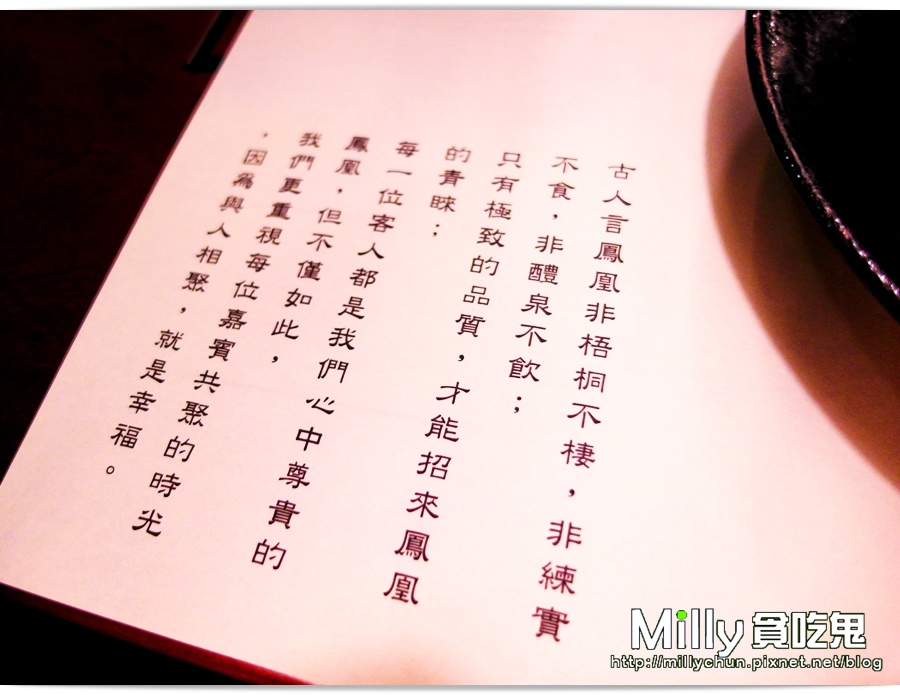 古人言鳳凰非梧桐不棲，非練實
不食，非醴泉不飲；
只有極致的品質，才能招來鳳凰
的青睞；
每一位客人都是我們心中尊貴的
鳳凰，但不僅如此，
我們更重視每位嘉賓共聚的時光
，因為與人相聚，就是幸福。
Milly 貪吃鬼
http://millychun.pixnet.net/blog